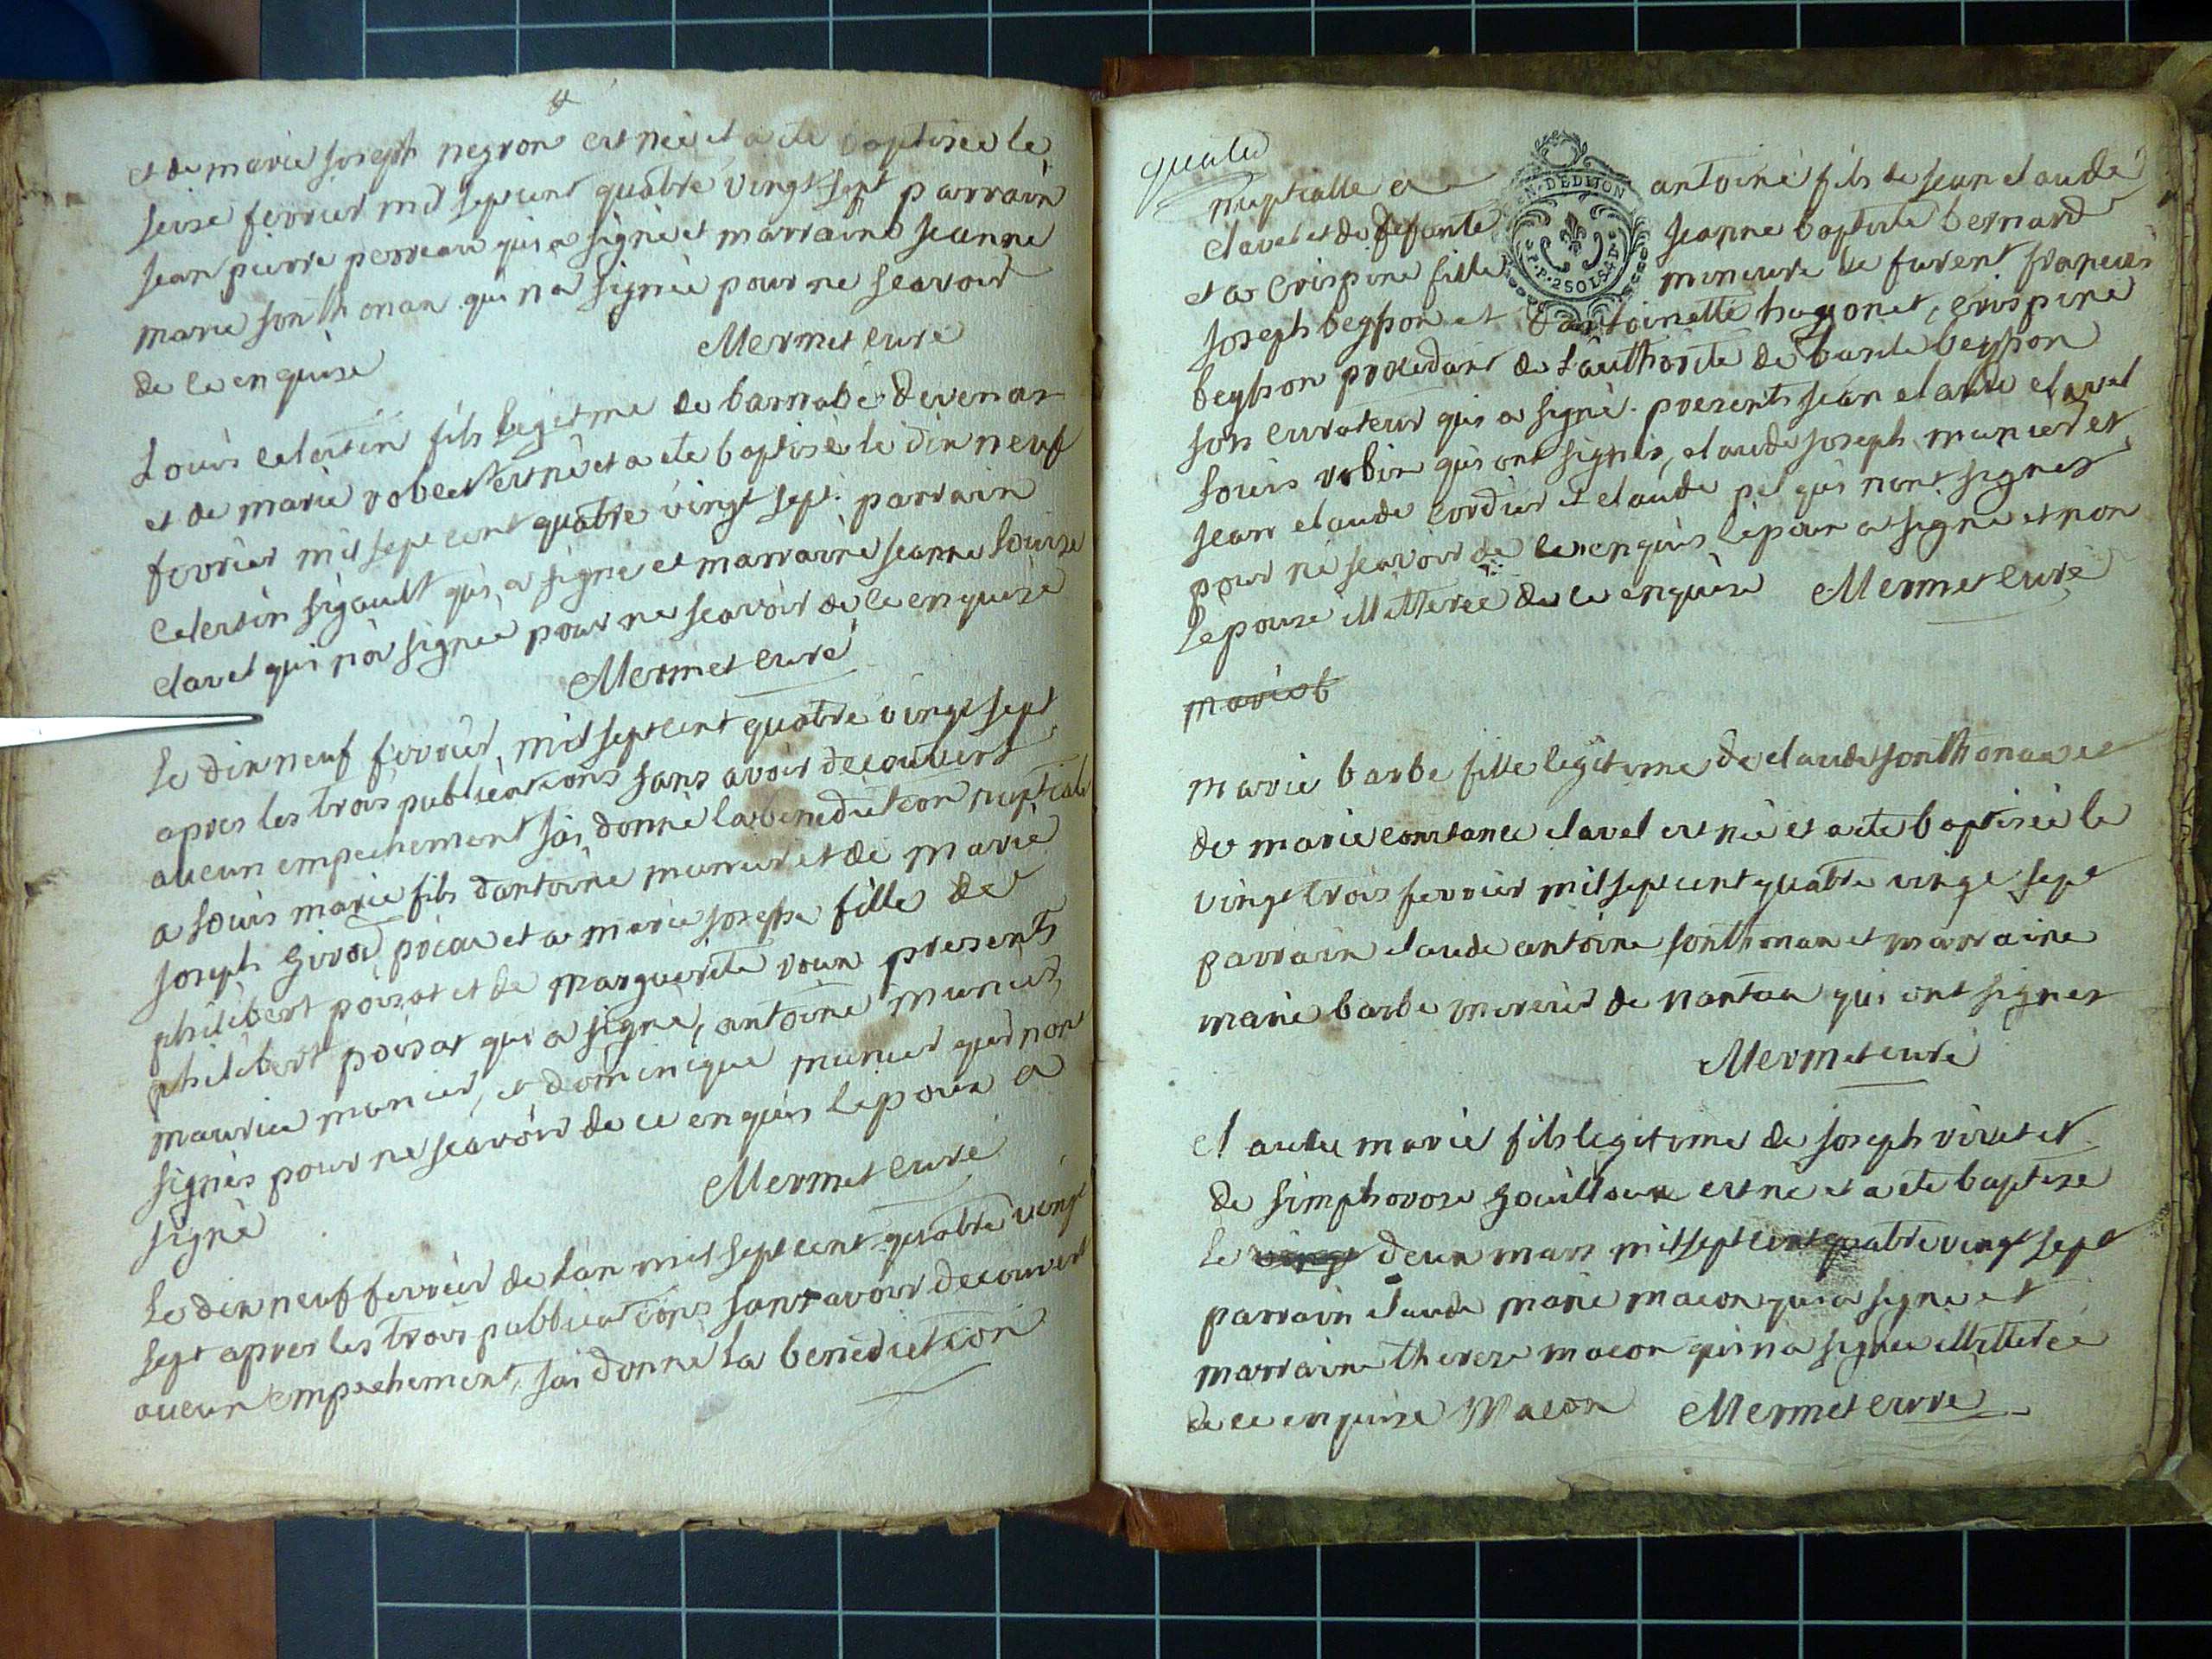 et de marie joseph negron est née et a ete baptisée le
seise fevrier mil sept cent quatre vingt sept parrain
jean pierre perreau qui a signé et marraine jeanne
marie sonthonax qui na signée pour ne scavoir
de ce enquise Mermet curé
Louis celestin fils legitime de barnabé devenas
et de marie robert est né et a ete baptisé le dix neuf
fevrier mil sept cent quatre vingt sept parrain
Celestin sigault qui a signé et marraine jeanne louise
clavel qui na signée pour ne scavoir de ce enquise
Mermet curé
Le dix neuf fevrier mil sept cent quatre vingt sept
apres les trois publications sans avoir découvert
aucun empechement jai donné la benediction nuptiale
a louis marie fils dantoine munier et de marie
joseph girod et a marie josephe fille de
philibert poizat et de marguerite roux presents
philibert poizat qui a signé, antoine munier,
maurice munier, et dominique munier qui non
signés pour ne scavoir de ce enquis lepoux a
signé Mermet curé
Le dix neuf fevrier de lan mil sept cent quatre vingt
sept apres les trois publications sans avoir decouvert
aucun empechement, jai donné la benediction
quatre
GEN. DE DIJON
P.P. 2 SOLS 4 D
nuptialle a antoine fils de jean claude
clavel et de defunte jeanne baptiste bernard
et a Crispine fille mineure de furent françois
joseph beysson et dantoinette hugonet, crispine
beysson procedant de lauthorité de beysson
son curateur qui a signé. presents jean claude clavel
louis robin qui ont signés, claude joseph munier et
jean claude cordier et claude pel qui nont signés
pour ne scavoir de ce enquis, lepoux a signé et non
Lepouse illitterée de ce enquise Mermet curé
marie b
marie barbe fille legitime de claude sonthonax et
de marie constance clavel est née et a ete baptisée le
vingt trois fevrier mil sept cent quatre vingt sept
parrain claude antoine sonthonax et marraine
marie barbe mercier de nantua qui ont signés
Mermet curé
Claude marie fils legitime de joseph viret et
de simphorose gouilloux est né et a ete baptise
le vingt deux mars mil sept cent quatre vingt sept
parrain claude marie macon qui a signé et
marraine thereze macon qui na signée illitterée
de ce enquise Macon Mermet curé